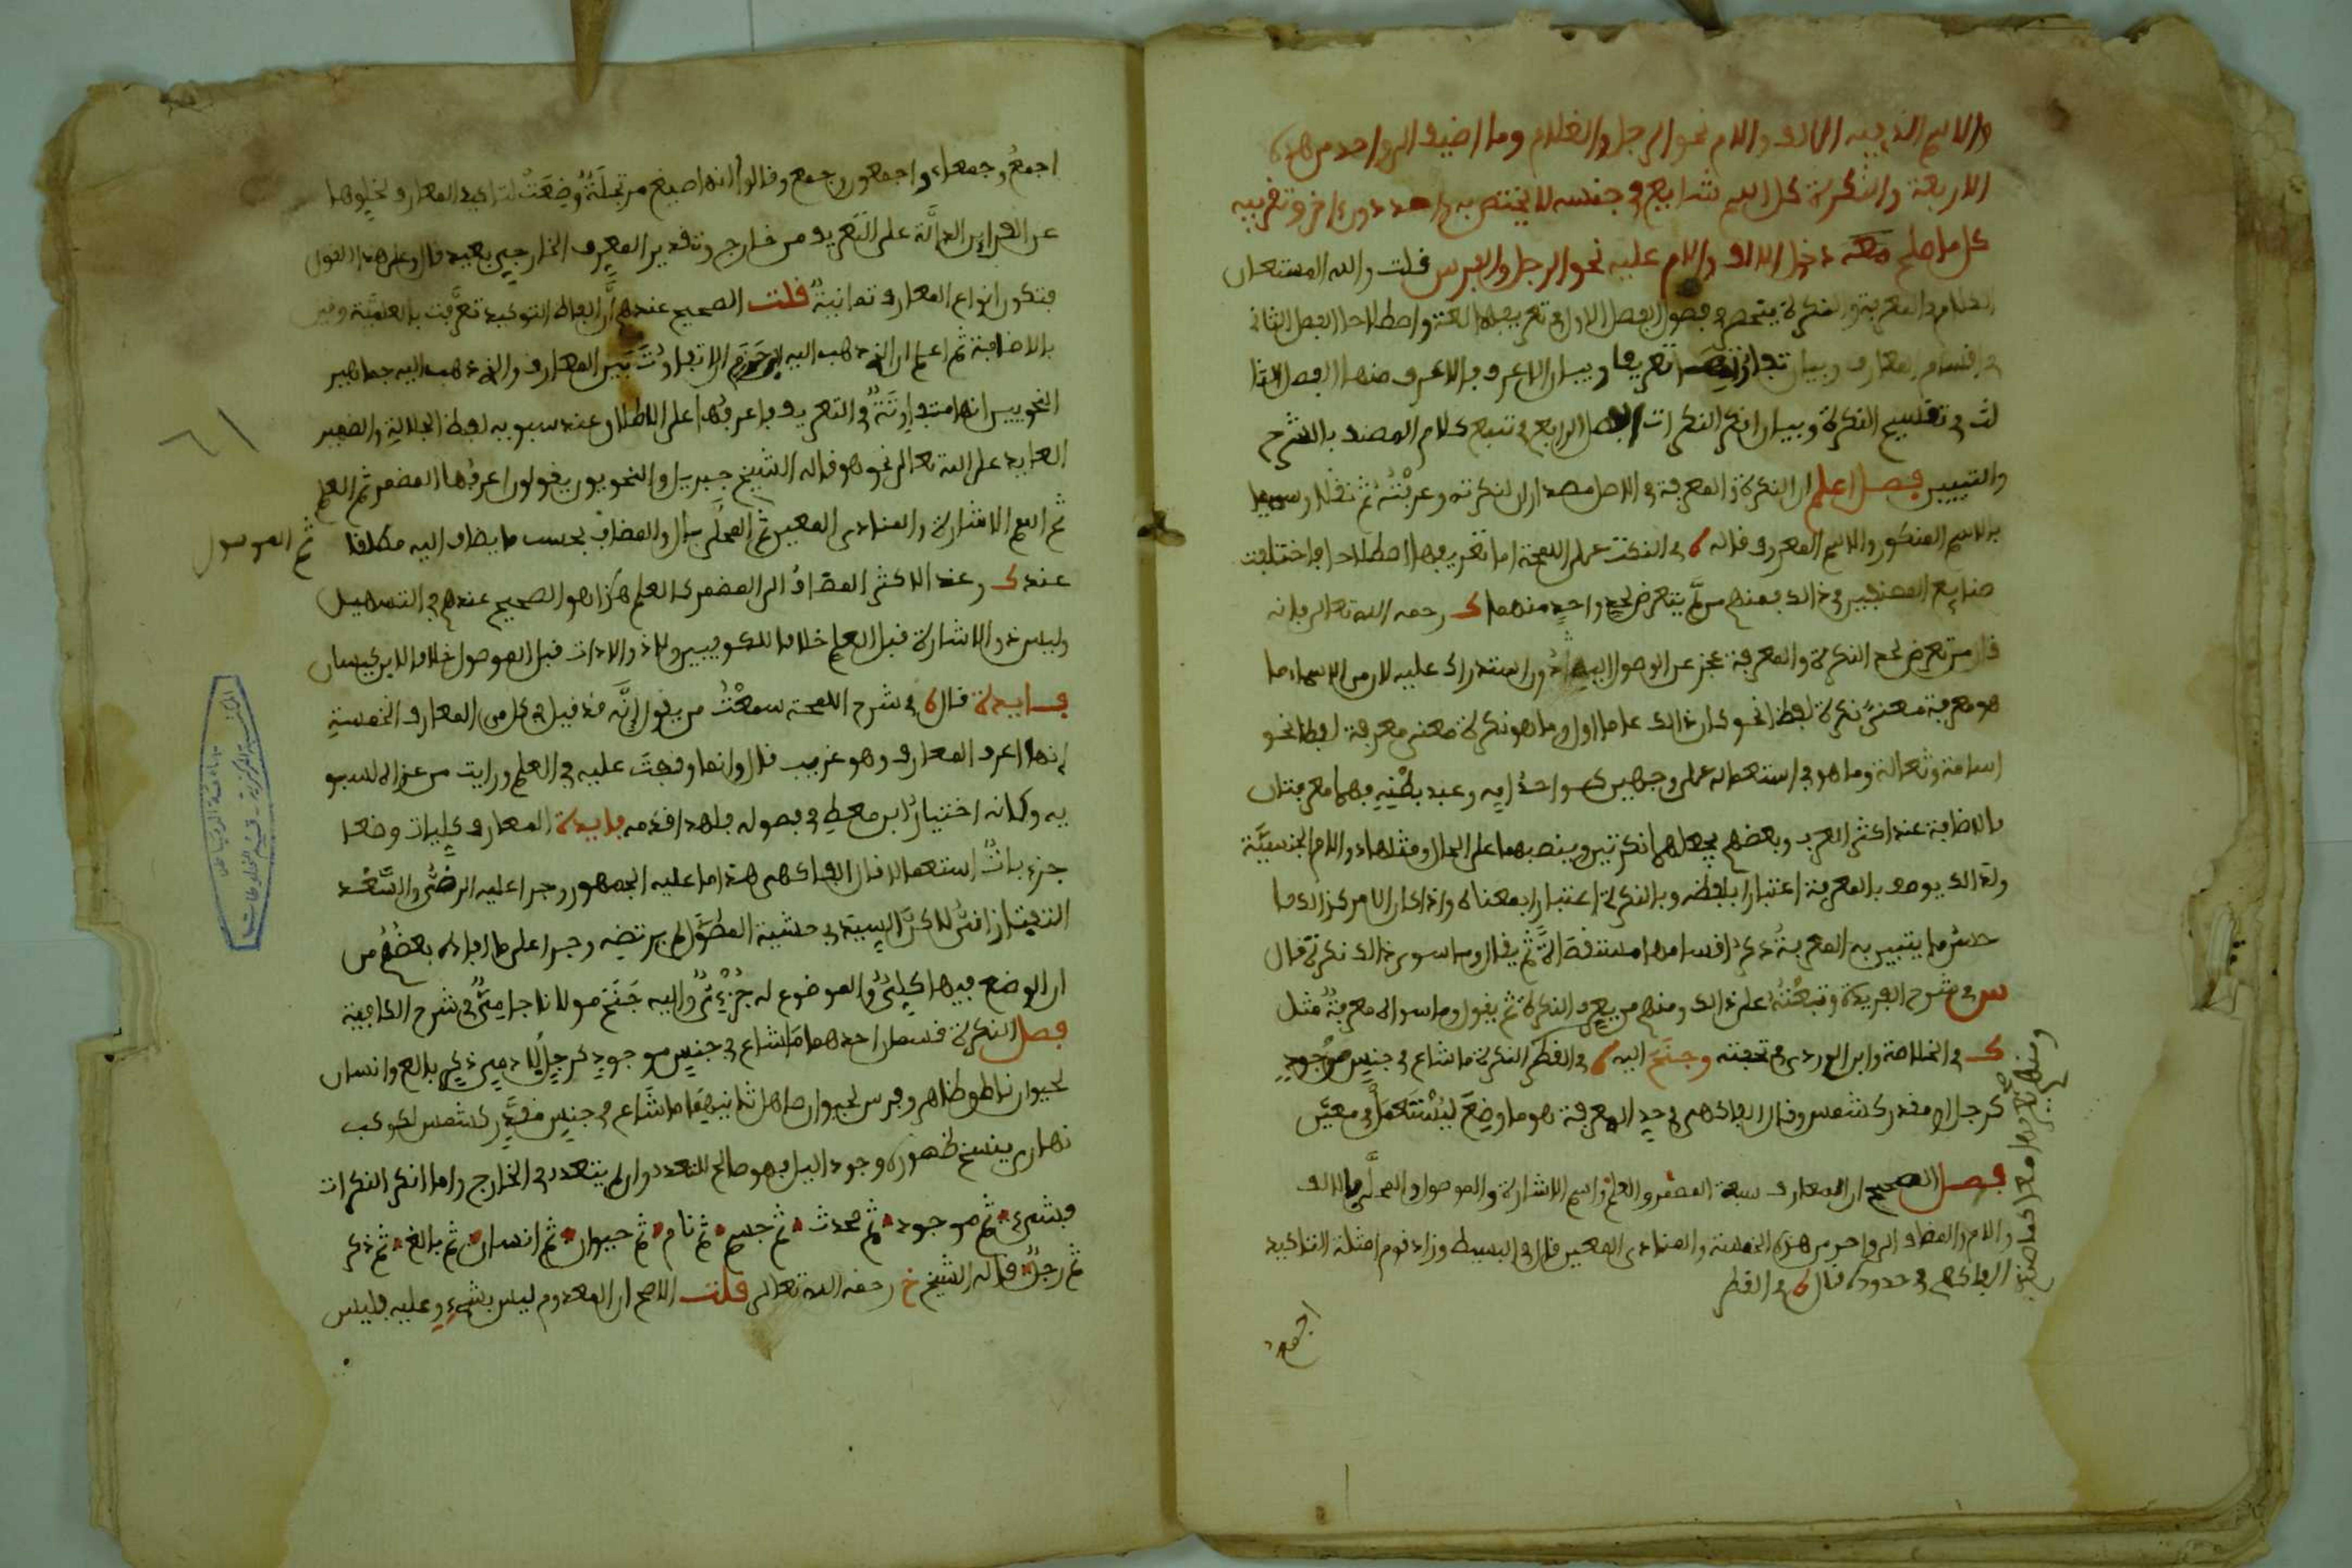 والاسم الذي فيه الالف واللام نحو الرجل والغلام وما اضيف الى واحد من هذه
الاربعة والنكرة كل اسم شايع في جنسه لا يختص به واحد دون اخر وتقريبه
كل ما صلح دخول الالف واللام عليه نحو الرجل والفرس قلت والله المستعان
الكلام في المعرفة والنكرة ينحصر في فصول الفصل الاول في تعريفهما لغة واصطلاحا الفصل الثاني
في اقسام المعارف وبيان تعريفها وبيان الاعرف فالاعرف منها الفصل الثا
لث في تقسيم النكرة وبيان انكر النكرات الفصل الرابع في تتبع كلام المصنف بالشرح
والتبيين فصل اعلم ان النكرة والمعرفة في الاصل مصدران لنكرته وعرفته ثم نقلا وسمي بهما
الاسم المنكور والاسم المعروف قاله في النكت على اللمحة اما تعريفهما اصطلاحا فاختلفت
صنايع المصنفين في ذالك فمنهم من لم يتعرض لحد واحد منهما ك رحمه الله تعالى فانه
قال من تعرض لحد النكرة والمعرفة عجز عن الوصول اليه دون استدراك عليه لان من الاسماء ما
هو معرفة معنى نكرة لفظا نحو كان ذالك عاما اول وما هو نكرة معنى معرفة لفظا نحو
اسامة وثعالة وما هو في استعماله على وجهين كواحد امه وعبد بطنه فهما معرفتان
بالاضافة عند اكثر العرب وبعضهم يجعلهما نكرتين وينصبهما على الحال ومثلهما ذو اللام الجنسية
ولذالك يوصف بالمعرفة اعتبارا بلفظه وبالنكرة اعتبارا بمعناه واذا كان الامر كذالك فا
حسن ما يتبين به المعرفة ذكر اقسامها مستقصاة ثم يقال وما سوى ذالك نكرة قال
س في شرح الفريدة وتبعته على ذالك ومنهم من يعرف النكرة ثم يقول وما سواه معرفة مثل
ك في الخلاصة وابن الوردي في تحفته وجنح اليه في القطر النكرة ما شاع في جنس موجود
كرجل او مقدر كشمس وقال الفاكهي في حد المعرفة هو ما وضع ليستعمل في معين
فصل الصحيح ان المعارف سبعة المضمر والعلم واسم الاشارة والموصول والمحلى بالالف
واللام والمضاف الى واحد من هذه الخمسة والمنادى المعين قال في البسيط وزاد قوم امثلة التاكيد
الفاكهي في حدوده قال في القطر
اجمع
اجمع وجمعاء واجمعون وجمع وقالوا انها صيغ مرتجلة وضعت لتاكيد المعارف لخلوها
عن القراين الدالة على التعريف من خارج وتقدير المعرف الخارجي بعيد قال وعلى هذا القول
فتكون انواع المعارف ثمانية قلت الصحيح عندهم ان الفاظ التوكيد تعرفت بالعلمية وقيل
بالاضافة ثم اعلم ان الذي ذهب اليه ابن حزم ان لا تفاوت بين المعارف والذي ذهب اليه جماهير
النحويين انها متفاوتة في التعريف فاعرفها على الاطلاق عند سيبويه لفظ الجلالة والضمير
العايد على الله تعالى نحو هو قاله الشيخ جبريل والنحويون يقولون اعرفها المضمر ثم العلم
ثم اسم الاشارة والمنادى المعين ثم المحلى بال والمضاف بحسب ما يضاف اليه مطلقا
ثم الموصول
عند ك وعند الاكثر المضاف الى المضمر كالعلم هذا هو الصحيح عندهم في التسهيل
وليس ذو الاشارة قبل العلم خلافا للكوفيين ولا ذو الاداة قبل الموصول خلافا لابن كيسان
فايدة قال في شرح اللمحة سمعت من يقول انه قد قيل في كل من المعارف الخمسة
انها اعرف المعارف وهو غريب قال وانما وقفت عليه في العلم ورايت من عزاه لسيبو
يه وكانه اختيار ابن معط في فصوله فلهذا قدمه فايدة المعارف كليات وضعا
جزءيات استعمالا قال الفاكهي هذا ما عليه الجمهور وجرا عليه الرضى والسعد
التفتازاني لاكن السيد في حشية المطول لم يرتضه وجرا على ما افاده بعضهم من
ان الوضع فيها كلي والموضوع له جزءي واليه جنح مولانا جامي في شرح الكافية
فصل النكرة قسمان احدهما ما شاع في جنس موجود كرجل لادمي ذكر بالغ وانسان
لحيوان ناطق ظاهر وفرس لحيوان صاهل ثانيهما ما شاع في جنس مقدر كشمس لكوكب
نهاري ينسخ ظهوره وجود اليل فهو صالح للتعدد وان لم يتعدد في الخارج واما انكر النكرات
فشيء ثم موجود ثم محدث ثم جسم ثم نام ثم حيوان ثم انسان ثم بالغ ثم ذكر
ثم رجل قاله الشيخ خ رحمه الله تعالى قلت الاصح ان المعدوم ليس بشيء وعليه فليس